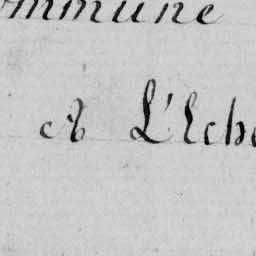 ommune
A L'Eche